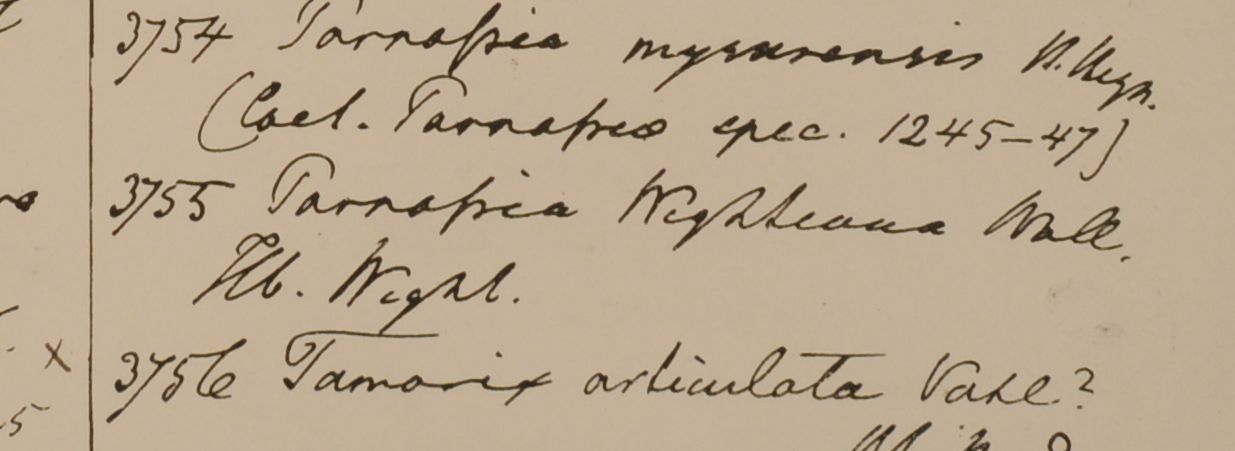 3754 Tarrafsia mysurensis H. Heyn.
(Coel. Tarrafsia spec. 1245-47)
3755 Tarrafsia Wightiana Wall.
Hb. Wight.
x
3756 Tamarix articulata Vahl?
5